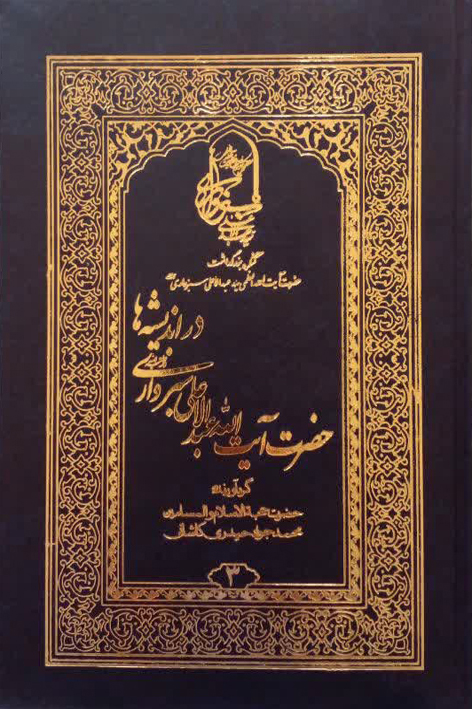 کنگره بزرگداشت
حضرت آیت الله العظمی سید عبدالاعلی سبزواری
در اندیشه‌ها
حضرت آیت الله عبدالاعلی سبزواری
گردآورنده
حضرت حجةالاسلام والمسلمین
محمدجواد حیدری کاشانی
۳